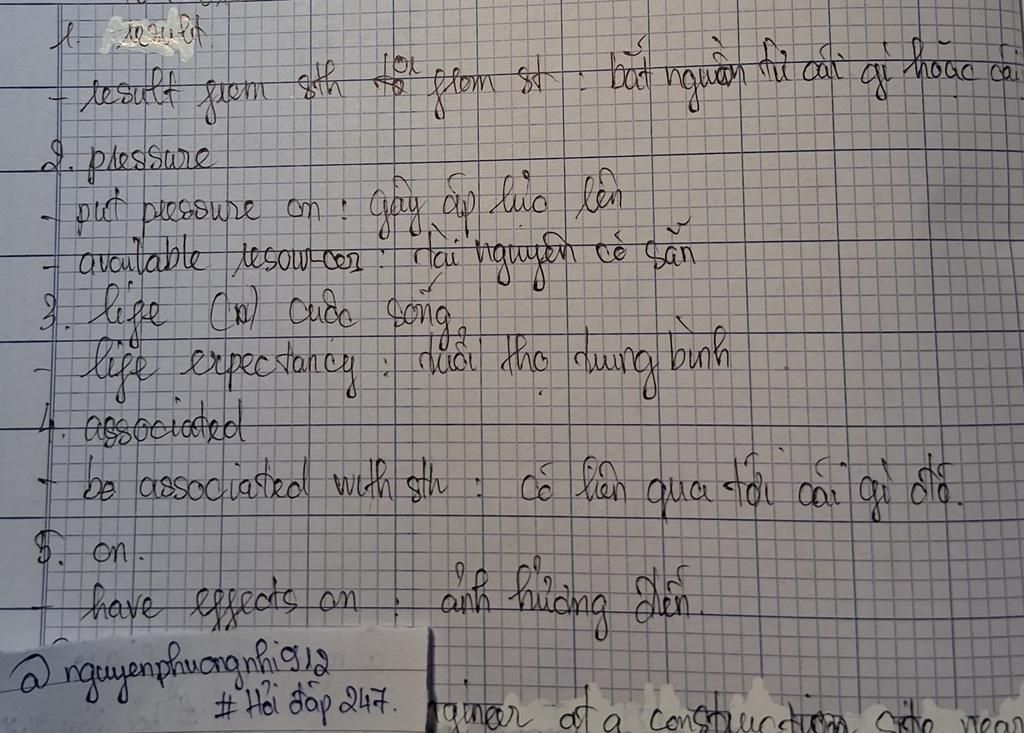 1. result
- result from sth or from st : bắt nguồn từ cái gì hoặc cái
2. pressure
- put pressure on : gây áp lực lên
- available resources : tài nguyên có sẵn
3. life (n) cuộc sống
- life expectancy : tuổi thọ trung bình
4. associated
- be associated with sth : có liên qua tới cái gì đó.
5. on.
- have effects on : ảnh hưởng đến.
@nguyenphuongnhi912
# Hỏi đáp 247.
gineer at a construction site near